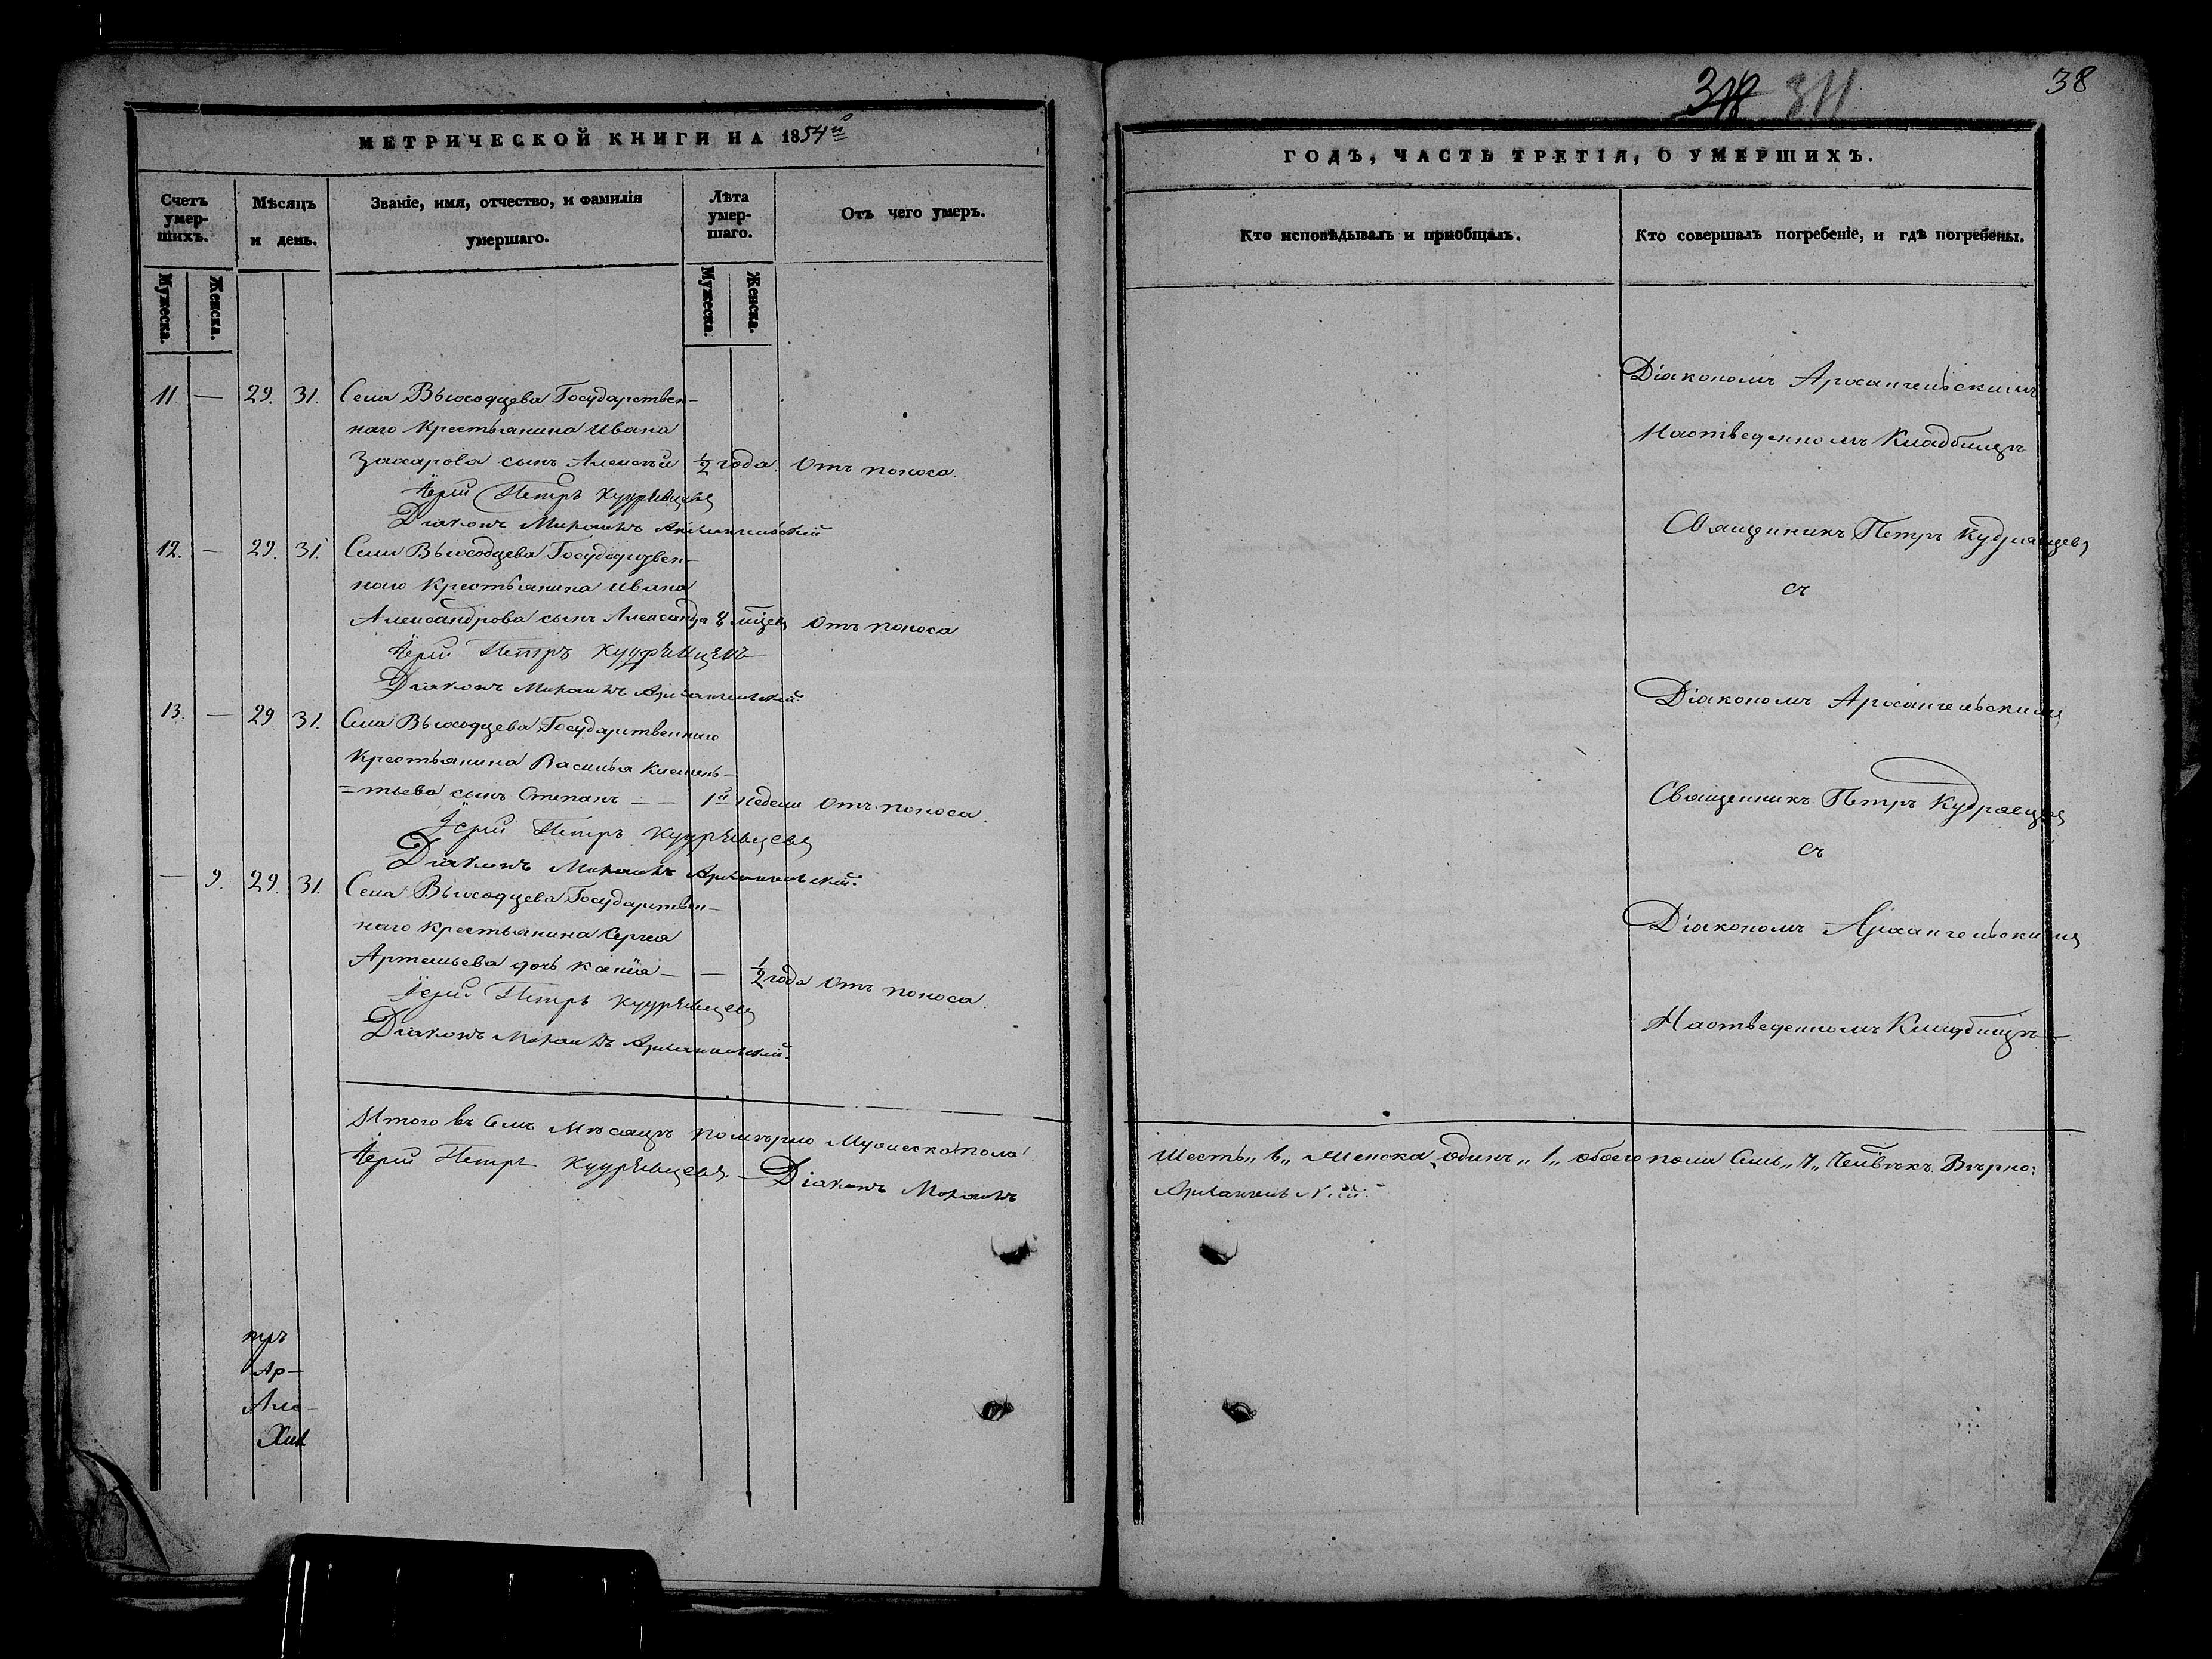 МЕТРИЧЕСКОЙ КНИГИ НА 1854й
Счетъ умер-шихъ.
Мѣсяцъ и день.
Званіе, имя, отчество, и фамилія умершаго.
Лѣта умер-шаго.
Отъ чего умеръ.
Мужеска. Женска.
Мужеска. Женска.
11 — 29. 31. Села Выходцева Государствен-
наго Крестьянина Ивана
Захарова сынъ Алексѣй ½ года. Отъ поноса.
Іерей Петръ Кудрявцевъ
Діаконъ Михаилъ Архангельскій
12. — 29. 31. Села Выходцева Государствен-
наго Крестьянина Ивана
Александрова сынъ Александръ 8 Отъ поноса
Іерей Петръ Кудрявцевъ
Діаконъ Михаилъ Архангельскій.
13. — 29 31. Села Выходцева Государственнаго
Крестьянина Василья Клемень-
=тьева сынъ Степанъ — — 1й недели Отъ поноса.
Іерей Петръ Кудрявцевъ
Діаконъ Михаилъ Архангельскій.
— 9. 29. 31. Села Выходцева Государствен-
наго Крестьянина Сергея
Артемьева дочь — — ½ года Отъ поноса.
Іерей Петръ Кудрявцевъ
Діаконъ Михаилъ Архангельскій.
Итого въ семъ Мѣсяцѣ померло Мужеска пола
Іерей Петръ Кудрявцевъ. — Діаконъ Михаилъ
пръ
Ар-
Але-
318 311
38
ГОДЪ, ЧАСТЬ ТРЕТІЯ, О УМЕРШИХЪ.
Кто исповѣдывалъ и пріобщалъ.
Кто совершалъ погребеніе, и гдѣ погребены.
Діакономъ Архангельскимъ
На отведенномъ Кладбищѣ
Священникъ Петръ Кудрявцевъ
съ
Діакономъ Архангельскимъ
Священникъ Петръ Кудрявцевъ
съ
Діакономъ Архангельскимъ
На отведенномъ Кладбищѣ
шесть „ 6 „ Женска одинъ „ 1 „ обоего пола Семь „ 7 „ Человѣкъ. Вѣрно:
Архангельскій.